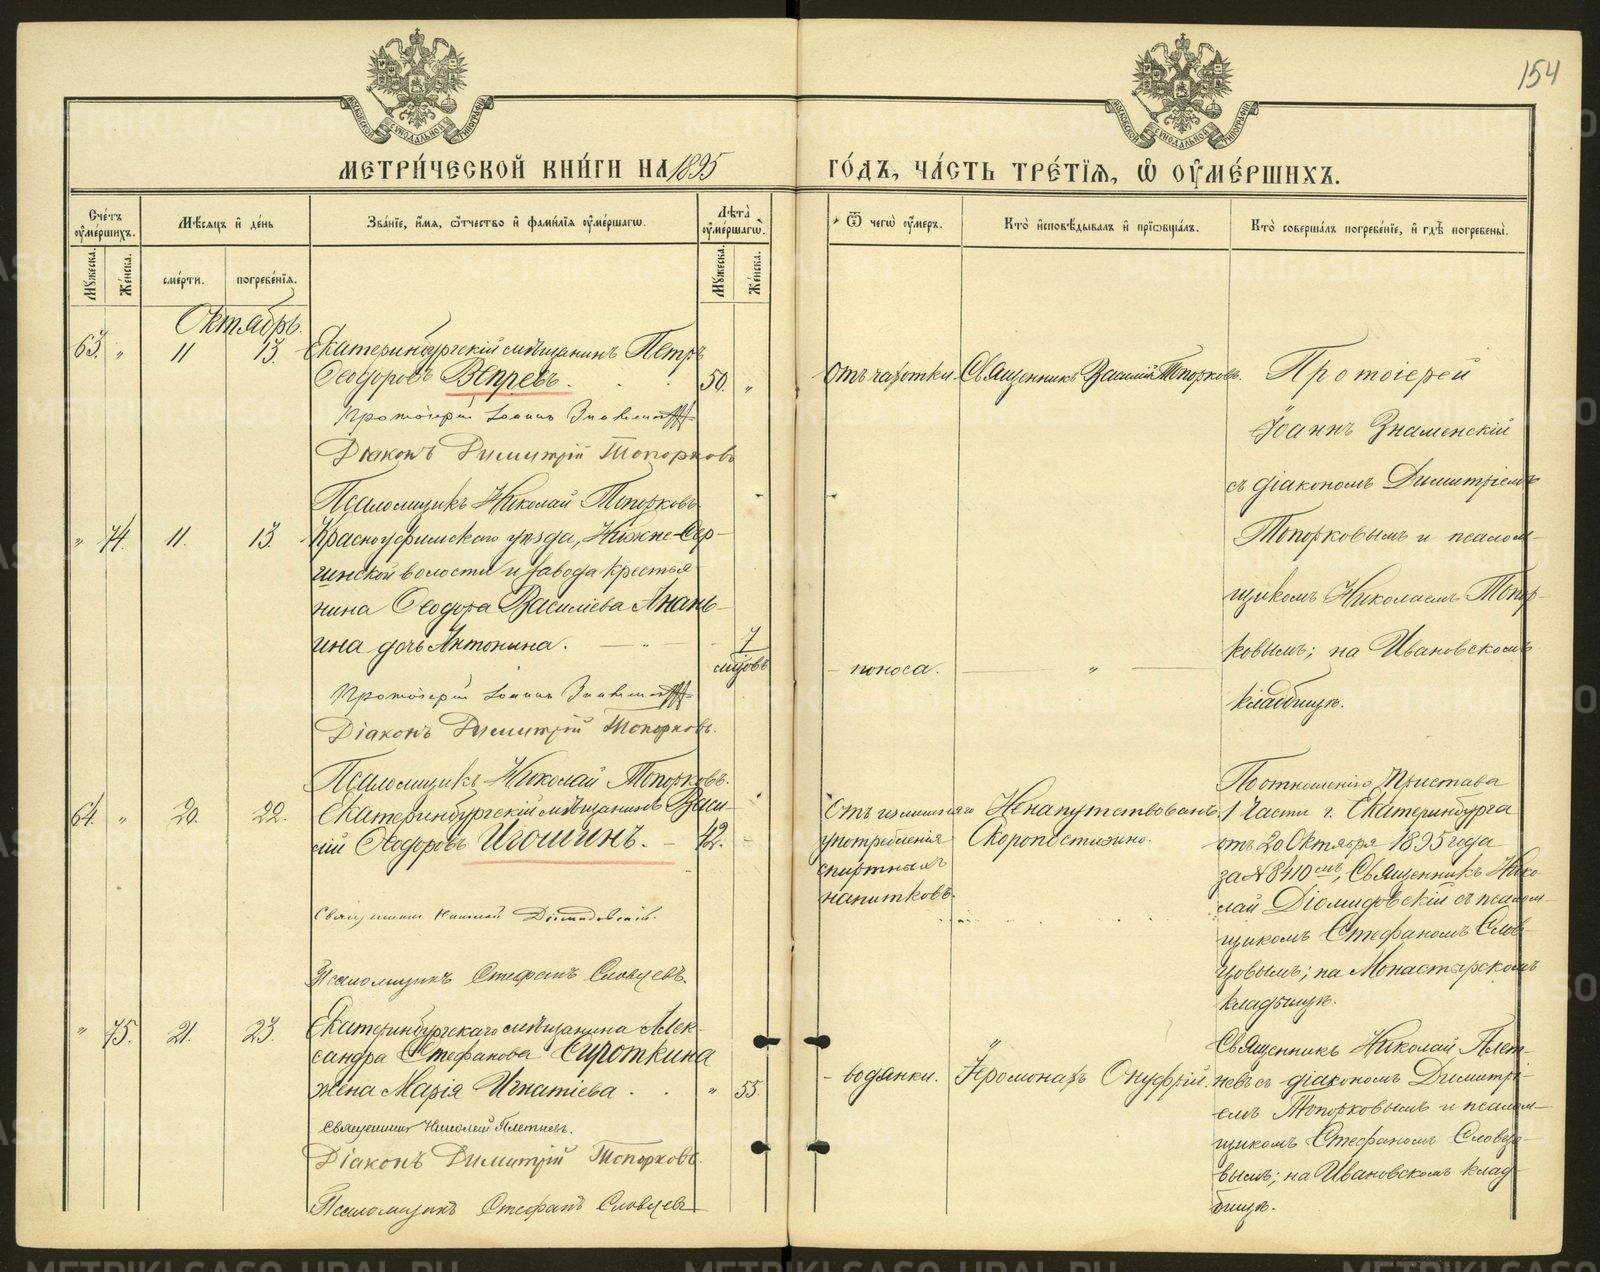 154
МЕТРИ́ЧЕСКОЙ КНИ́ГИ НА 1895
ГО́ДЪ, ЧА́СТЬ ТРЕ́ТЇѦ, Ѡ҆ ОУ҆МЕ́РШИХЪ.
Сче́тъ оу҆ме́ршихъ.
Мꙋ́жеска.
Же́нска.
Мѣ́сѧцъ и҆ де́нь
сме́рти.
погребе́нїѧ.
Зва́нїе, и҆́мѧ, ѻ҆́тчество и҆ фами́лїѧ оу҆ме́ршагѡ.
Лѣ́та оу҆ме́ршагѡ.
Мꙋ́жеска.
Же́нска.
Ѿ чегѡ̀ оу҆́меръ.
Кто̀ и҆сповѣ́дывалъ и҆ прїѡбща́лъ.
Кто̀ соверша́лъ погребе́нїе, и҆ гдѣ̀ погребены̀.
Октябрь.
63. " 11 13. Екатеринбургскій мѣщанинъ Петръ
Ѳеодоровъ Вепревъ. 50. "
Протоіерей Іоаннъ Знаменскій
Діаконъ Димитрій Топорковъ
Псаломщикъ Николай Топорковъ.
Отъ чахотки.
Священникъ Василій Топорковъ.
Протоіерей
Іоаннъ Знаменскій
съ діакономъ Димитріемъ
Топорковымъ и псалом-
щикомъ Николаемъ Топор-
ковымъ; на Ивановскомъ
кладбищѣ.
" 74. 11. 13. Красноуфимскаго уѣзда, Нижне-Сер-
гинской волости и завода крестья-
нина Ѳеодора Василіева Анань-
ина дочь Антонина. — " — 7
мѣсяцовъ
Протоіерей Іоаннъ Знаменскій
Діаконъ Димитрій Топорковъ.
Псаломщикъ Николай Топорковъ.
– поноса. — " —
64. " 20. 22. Екатеринбургскій мѣщанинъ Васи-
лій Ѳеодоровъ Игошинъ. – 42. –
Священникъ Николай Діомидовскій.
Псаломщикъ Стефанъ Словцевъ.
Отъ излишняго
употребленія
спиртныхъ
напитковъ.
Ненапутствованъ.
Скоропостижно.
По отношенію Пристава
1 части г. Екатеринбурга
отъ 20 Октября 1895 года
за № 8410мъ, Священникъ Нико-
лай Діомидовскій съ псалом-
щикомъ Стефаномъ Слов-
цовымъ; на Монастырскомъ
кладбищѣ.
" 75. 21. 23. Екатеринбургскаго мѣщанина Алек-
сандра Стефанова Сироткина
жена Марія Игнатіева . . " 55.
Священникъ Николай Плетневъ.
Діаконъ Димитрій Топорковъ.
Псаломщикъ Стефанъ Словцевъ
– водянки.
"
Іеромонахъ Онуфрій.
Священникъ Николай Плет-
невъ съ діакономъ Димитрі-
емъ Топорковымъ и псалом-
щикомъ Стефаномъ Словце-
вымъ; на Ивановскомъ клад-
бищѣ.
METRIKI.GASO-URAL.RU